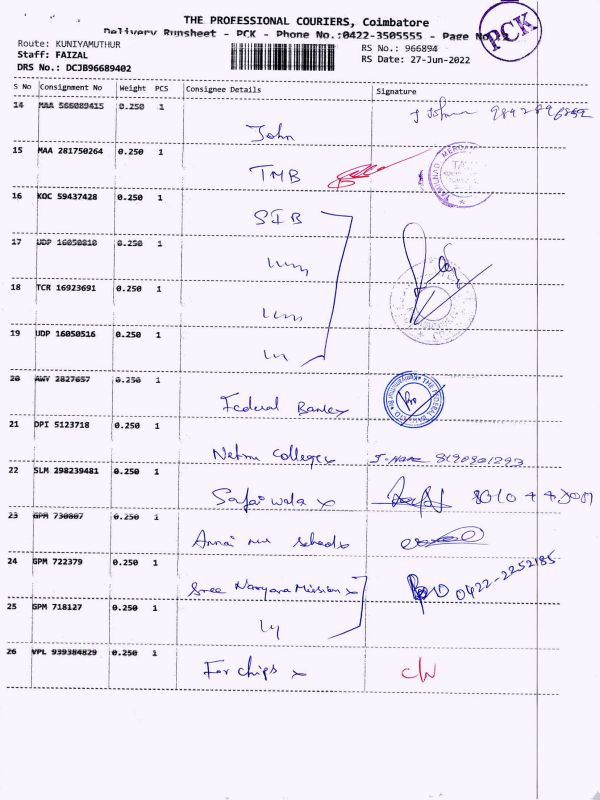 THE PROFESSIONAL COURIERS, Coimbatore
Delivery Runsheet - PCK - Phone No.:0422-3505555 - Page No
PCK
Route: KUNIYAMUTHUR
Staff: FAIZAL
DRS No.: DCJB96689402
RS No.: 966894
RS Date: 27-Jun-2022
S No Consignment No Weight PCS Consignee Details Signature
14 MAA 566089415 0.250 1 John
15 MAA 281750264 0.250 1 TMB
16 KOC 59437428 0.250 1 SIB
17 UDP 16050810 0.250 1
18 TCR 16923691 0.250 1
19 UDP 16050516 0.250 1
20 AWV 2827657 0.250 1 Federal Bank
21 DPI 5123718 0.250 1 Nehru College
22 SLM 298239481 0.250 1 Safai wala
23 GPM 730807 0.250 1
24 GPM 722379 0.250 1 Sree Narayana Mission 0422-2252185
25 GPM 718127 0.250 1
26 VPL 939384829 0.250 1 For chips